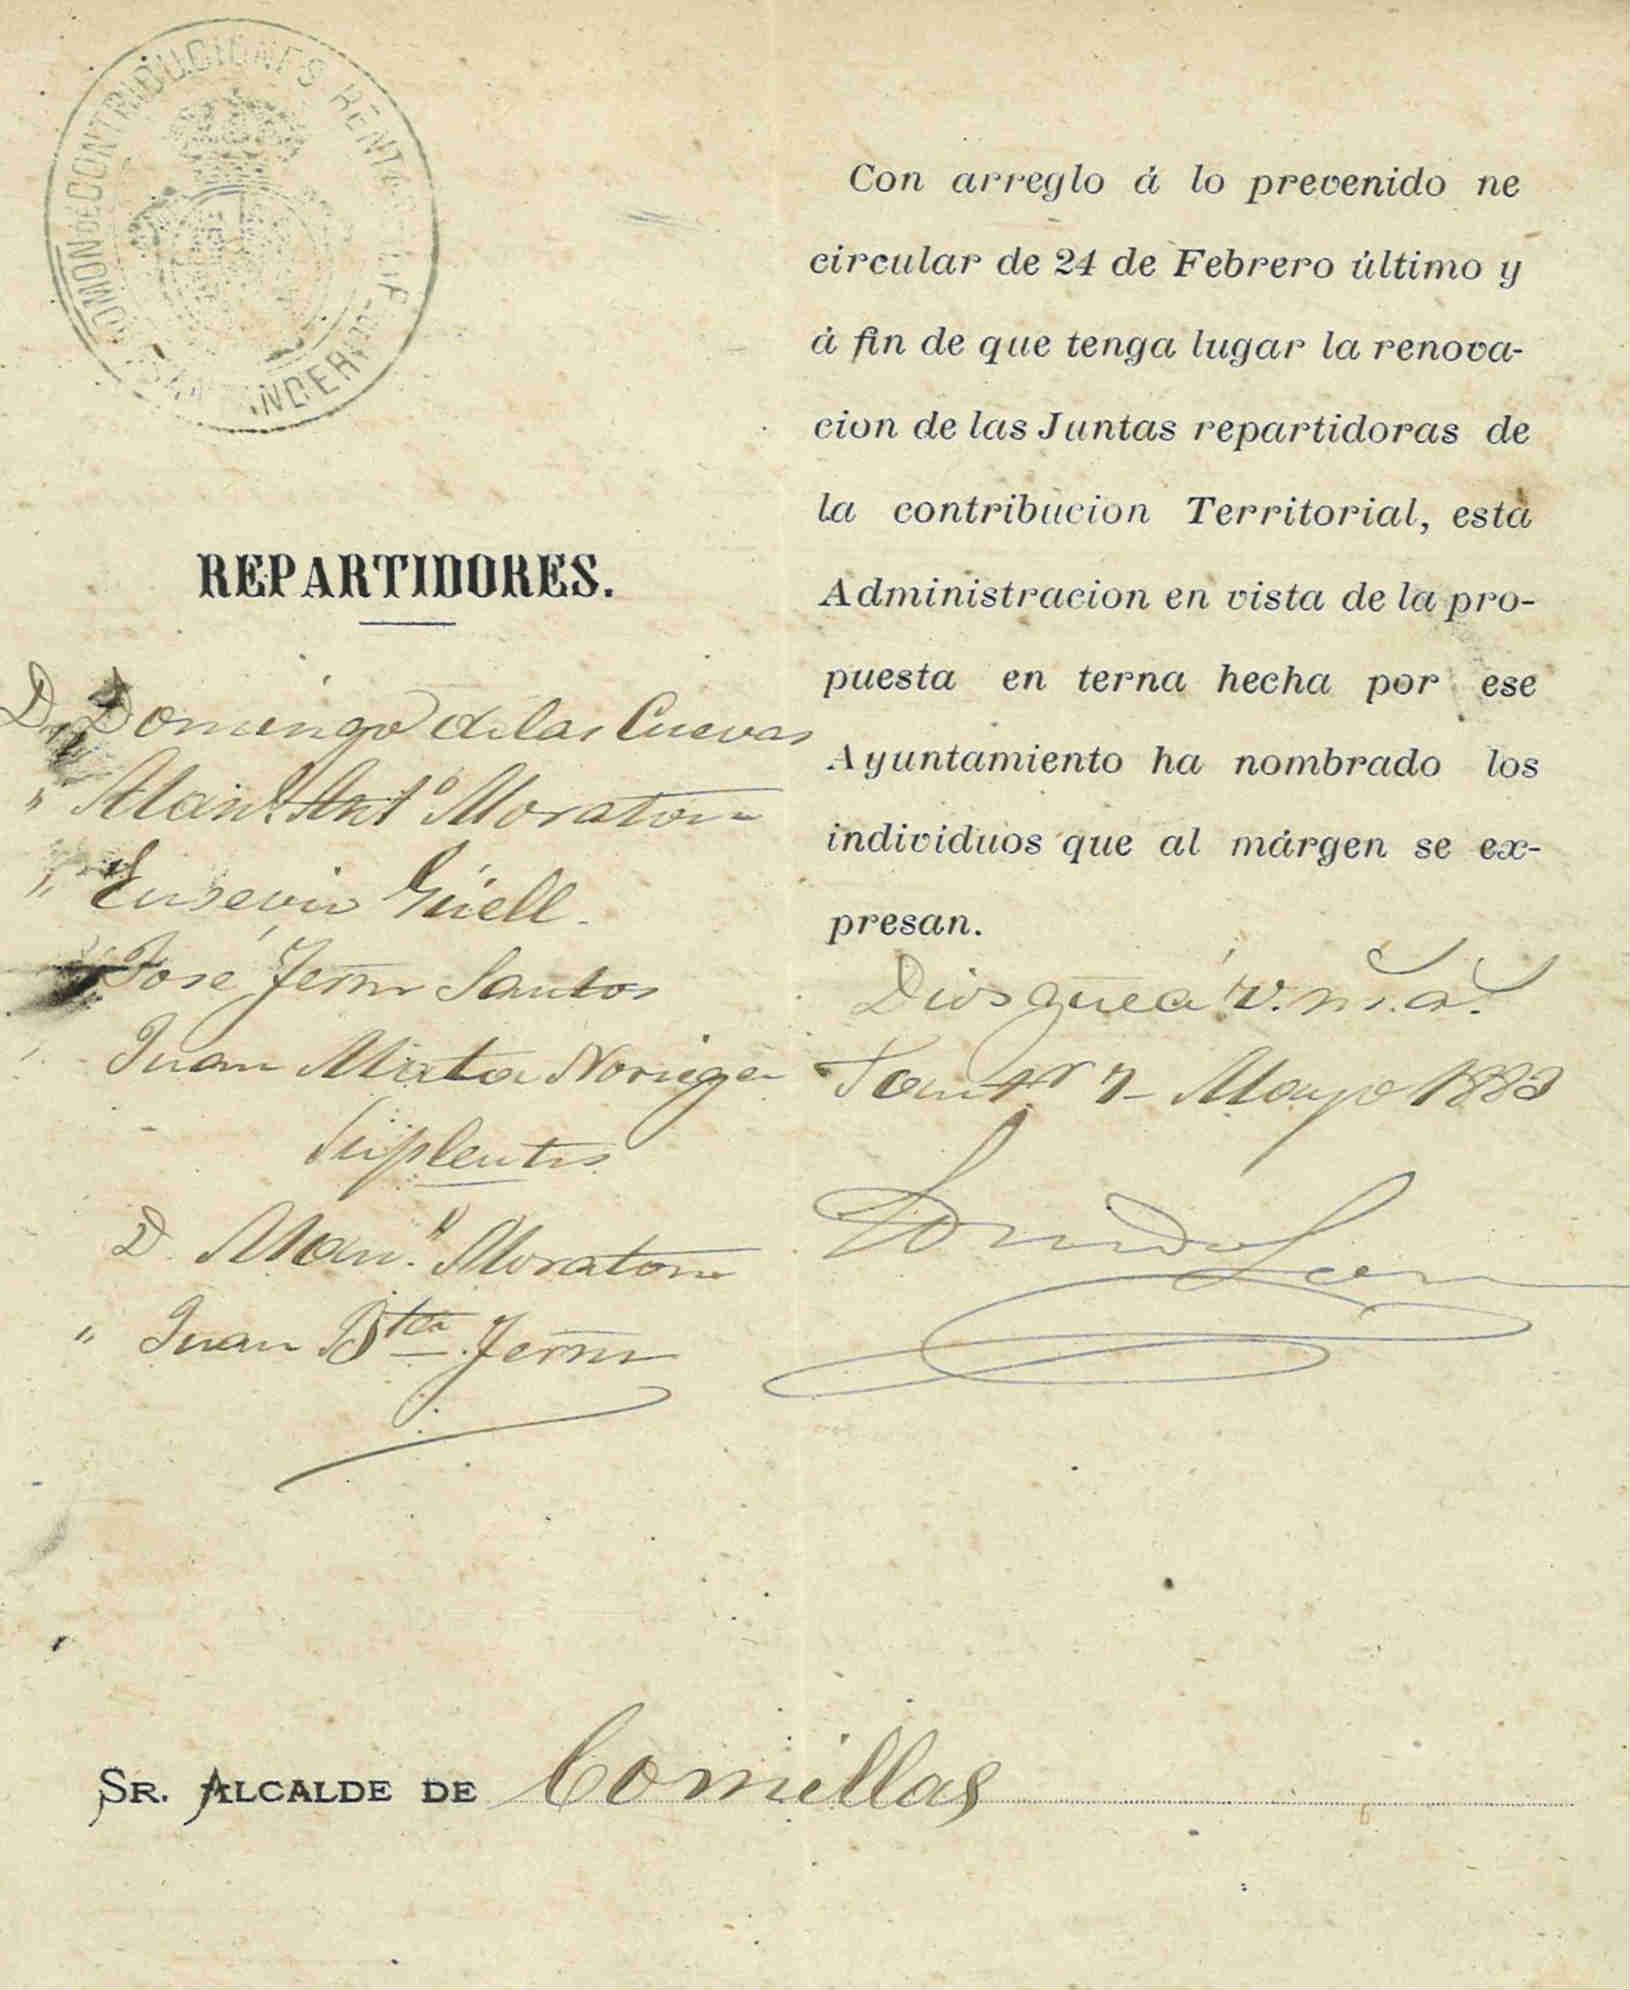 CONTRIBUCIONES RENTAS
REPARTIDORES.
D. Domingo de las Cuevas
" Man.l Ant.o Moraton
" Eusevio Güell.
" José Jern Santos
" Juan Mata Noriega
Suplentes
D. Man.l Moraton
" Juan Bta Jern
Con arreglo á lo prevenido ne
circular de 24 de Febrero último y
á fin de que tenga lugar la renova-
cion de las Juntas repartidoras de
la contribucion Territorial, está
Administracion en vista de la pro-
puesta en terna hecha por ese
Ayuntamiento ha nombrado los
individuos que al márgen se ex-
presan.
Dios gue á V. m. a.
Santr 7 Mayo 1883
SR. ALCALDE DE Comillas